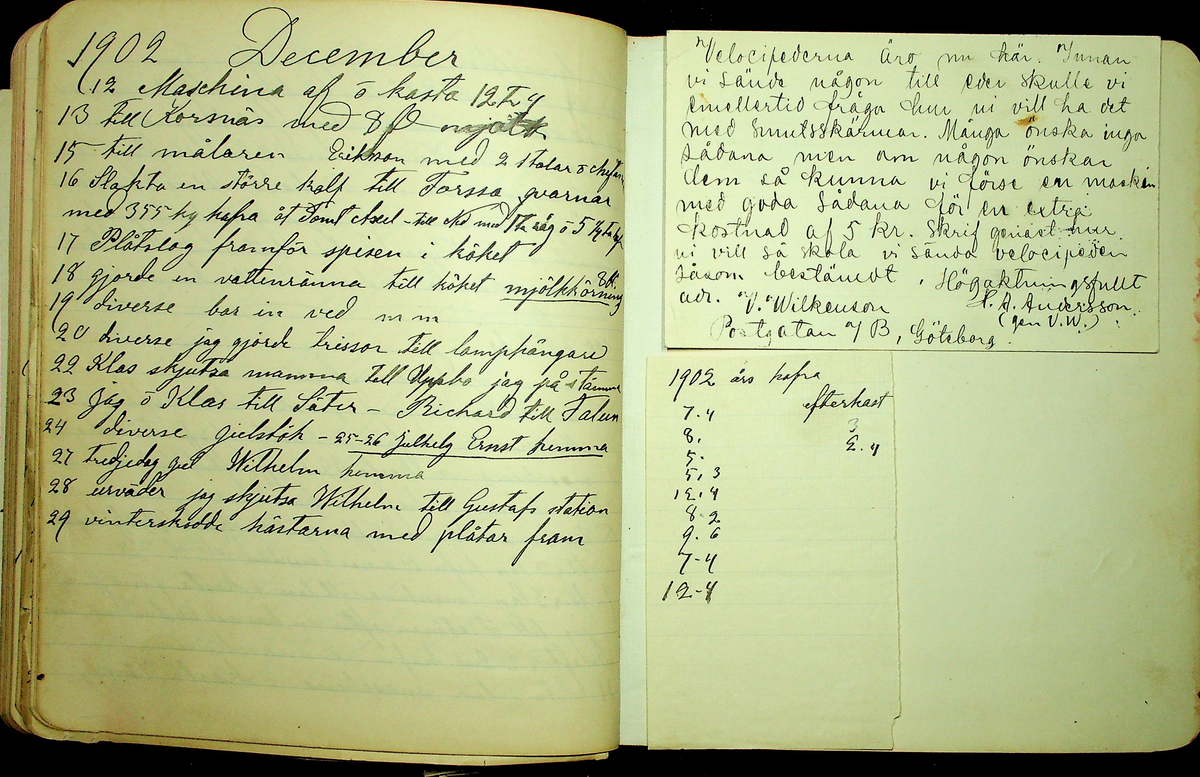 1902 December
12 Maschina af ö kasta 12 T 4
13 till Korsnäs med 8 mjölk
15 till målaren Erikson med 2 stolar ö
16 Slakta en större kalf till Forssa qvarnar
med 355 kg hafra åt
17 Plåtslog framför spisen i köket
18 gjorde en vattenränna till köket mjölkkörning
19 diverse bar in ved m m
20 diverse jag gjorde trissor till lamphängare
22 Klas skjutsa mamma till Uppbo jag på stämma
23 jag ö Klas till Säter - Richard till Falun
24 diverse julstök - 25-26 julhelg Ernst hemma
27 tredjedag jul Wilhelm hemma
28 urväder jag skjutsa Wilhelm till Gustafs station
29 vinterskodde hästarna med plåtar fram
Velocipederna äro nu här. Innan
vi sände någon till eder skulle vi
emellertid fråga hur ni vill ha det
med smutsskärmar. Många önska inga
sådana men om någon önskar
dem så kunna vi förse en maskin
med goda sådana för en extra
kostnad af 5 kr. Skrif genast hur
ni vill så skola vi sända velocipeden
såsom bestämdt. Högaktningsfullt
adr. V. Wilkenson P. A. Andersson.
(gen V.W.)
Postgatan 7 B, Göteborg.
1902 års hafra
efterkast
7.4 3
8. 2.4
5.
5,3
12.4
8.2
9.6
7-4
12-4